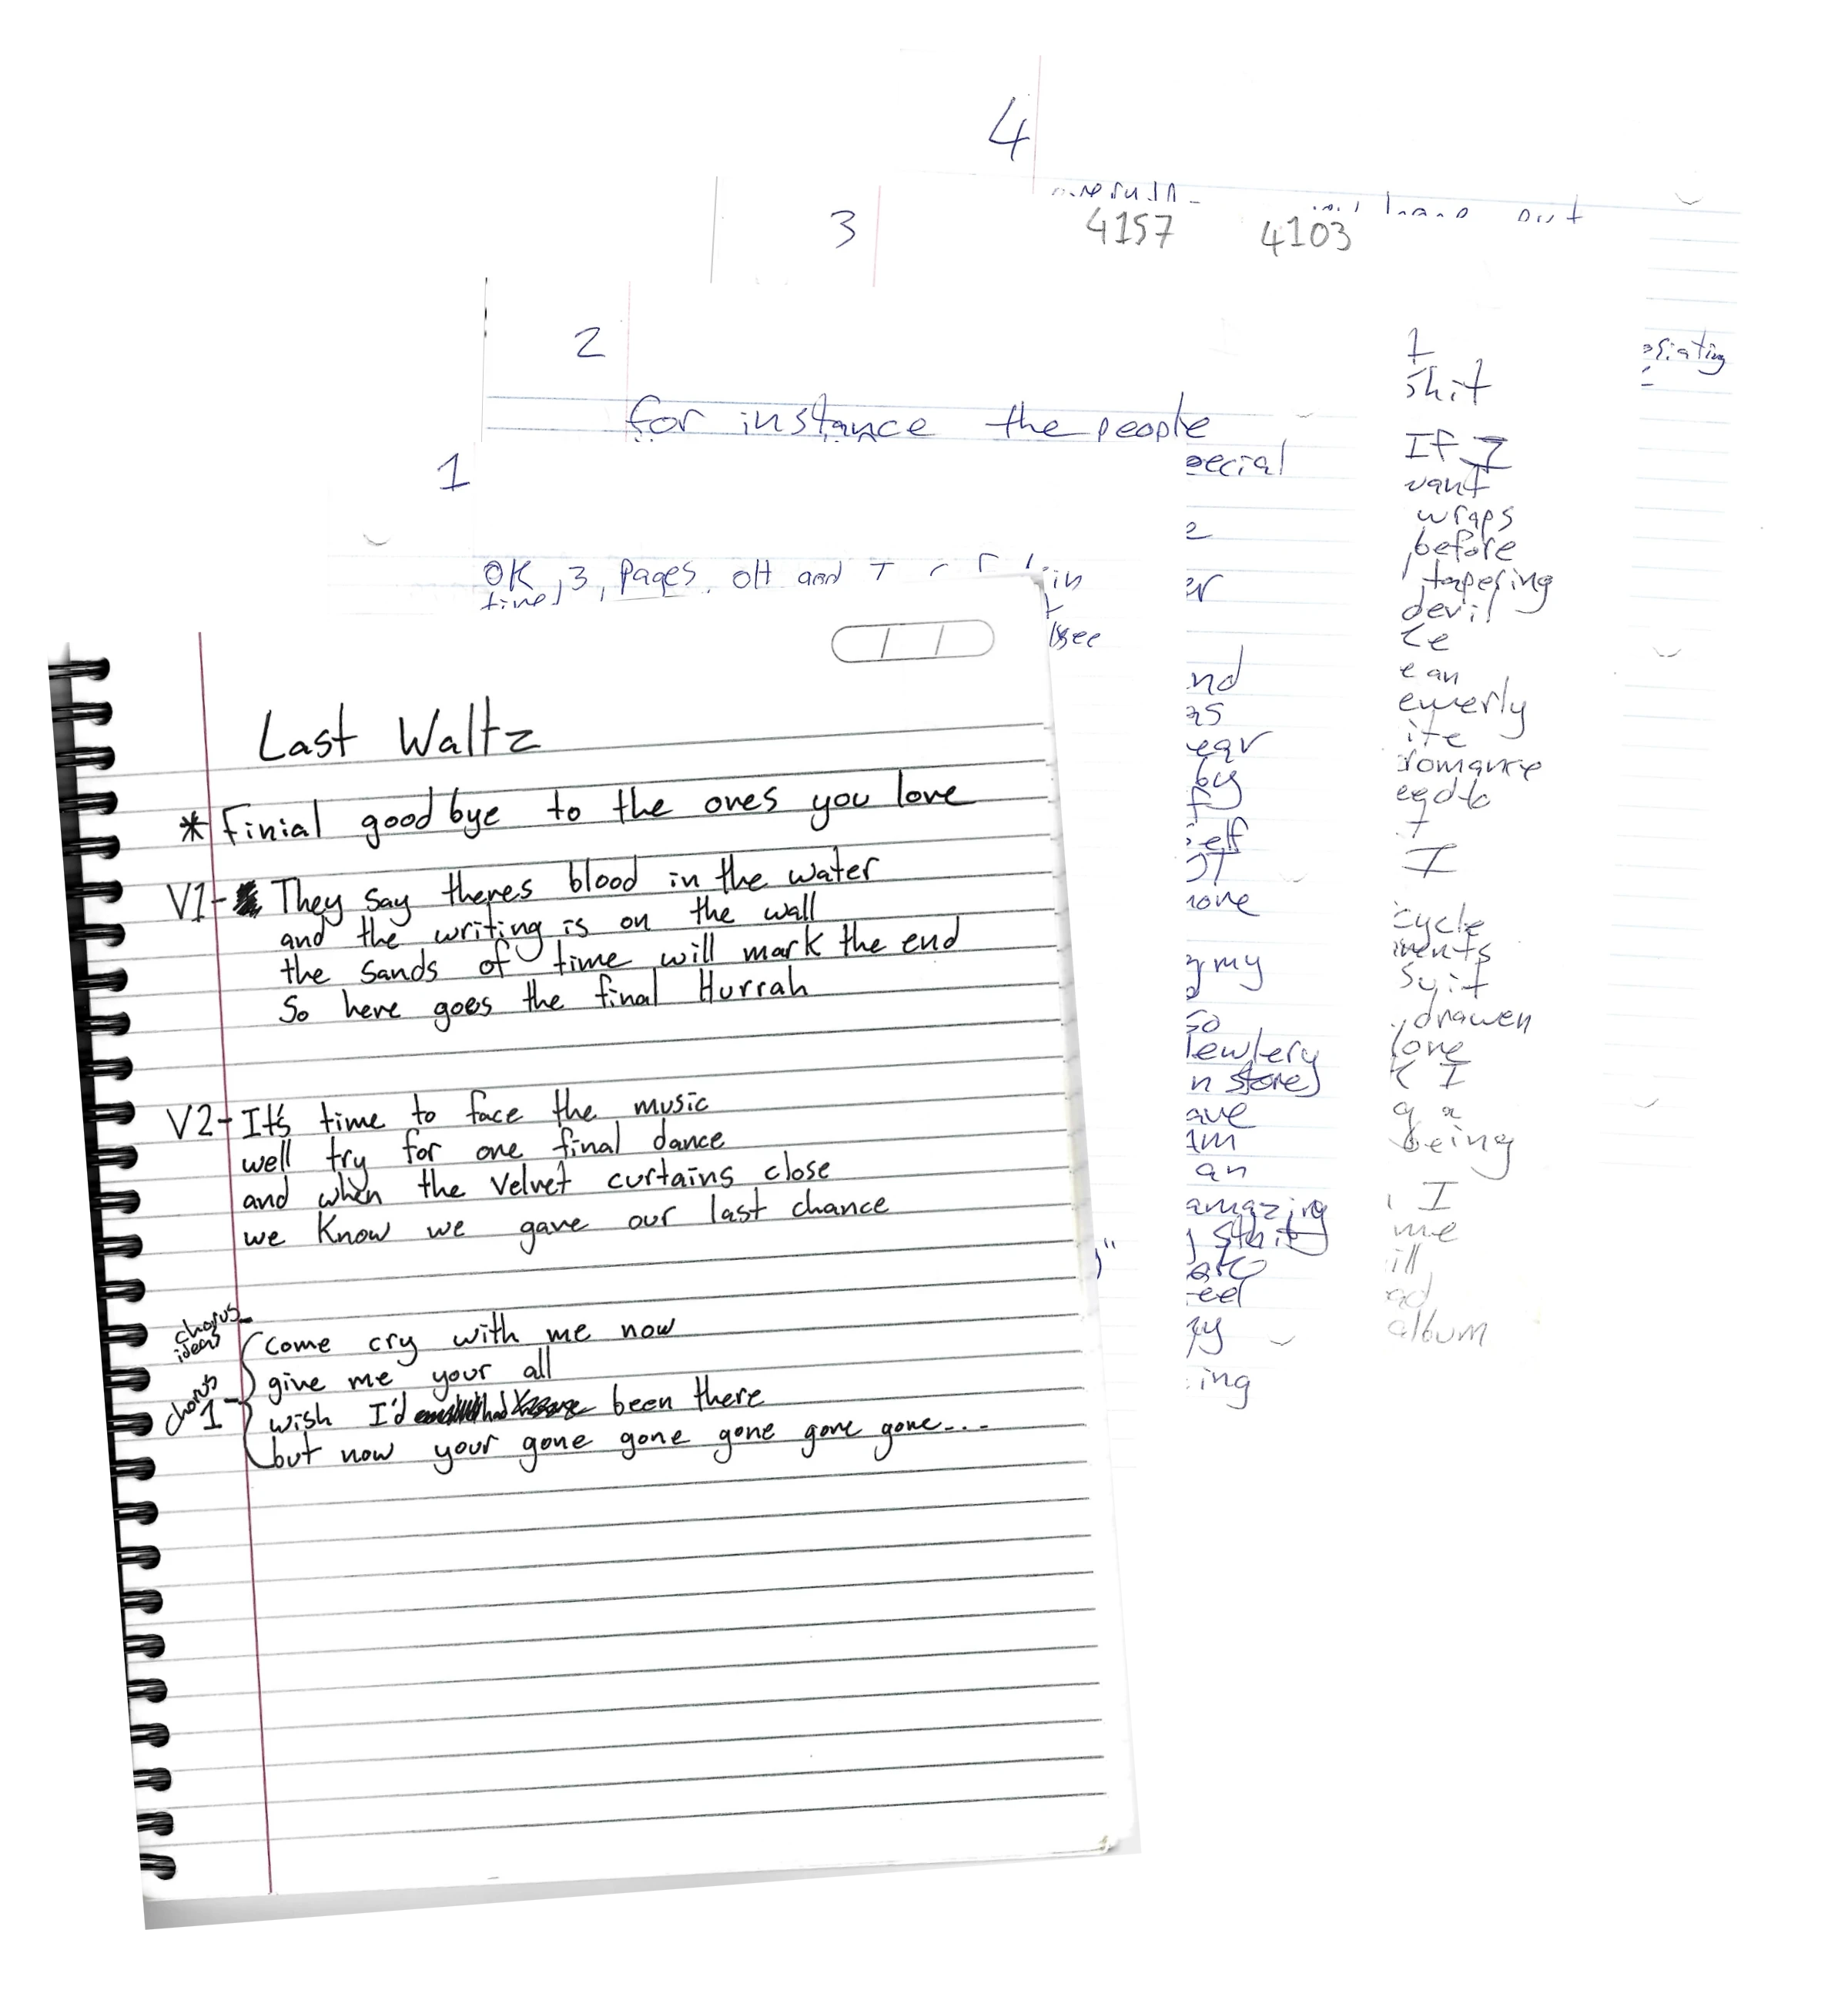 4
3
4157 4103
2
for instance the people
1
OK, 3, Pages, OH and I
Last Waltz
*Finial goodbye to the ones you love
V1- They say theres blood in the water
and the writing is on the wall
the sands of time will mark the end
So here goes the final Hurrah
V2- It's time to face the music
we'll try for one final dance
and when the velvet curtains close
we know we gave our last chance
chorus ideas
chorus 1-
come cry with me now
give me your all
wish I'd been there
but now your gone gone gone gone gone...
see
ecial
nd
ear
by
self
my
so
Jewlery
n stores
ave
Im
an
amazing
eel
ing
1
shit
If I
want
wraps
before
tapering
devil
ce
ean
ewerly
ite
romance
I
cycle
ments
suit
drawen
love
k I
being
I
me
ill
ad
album